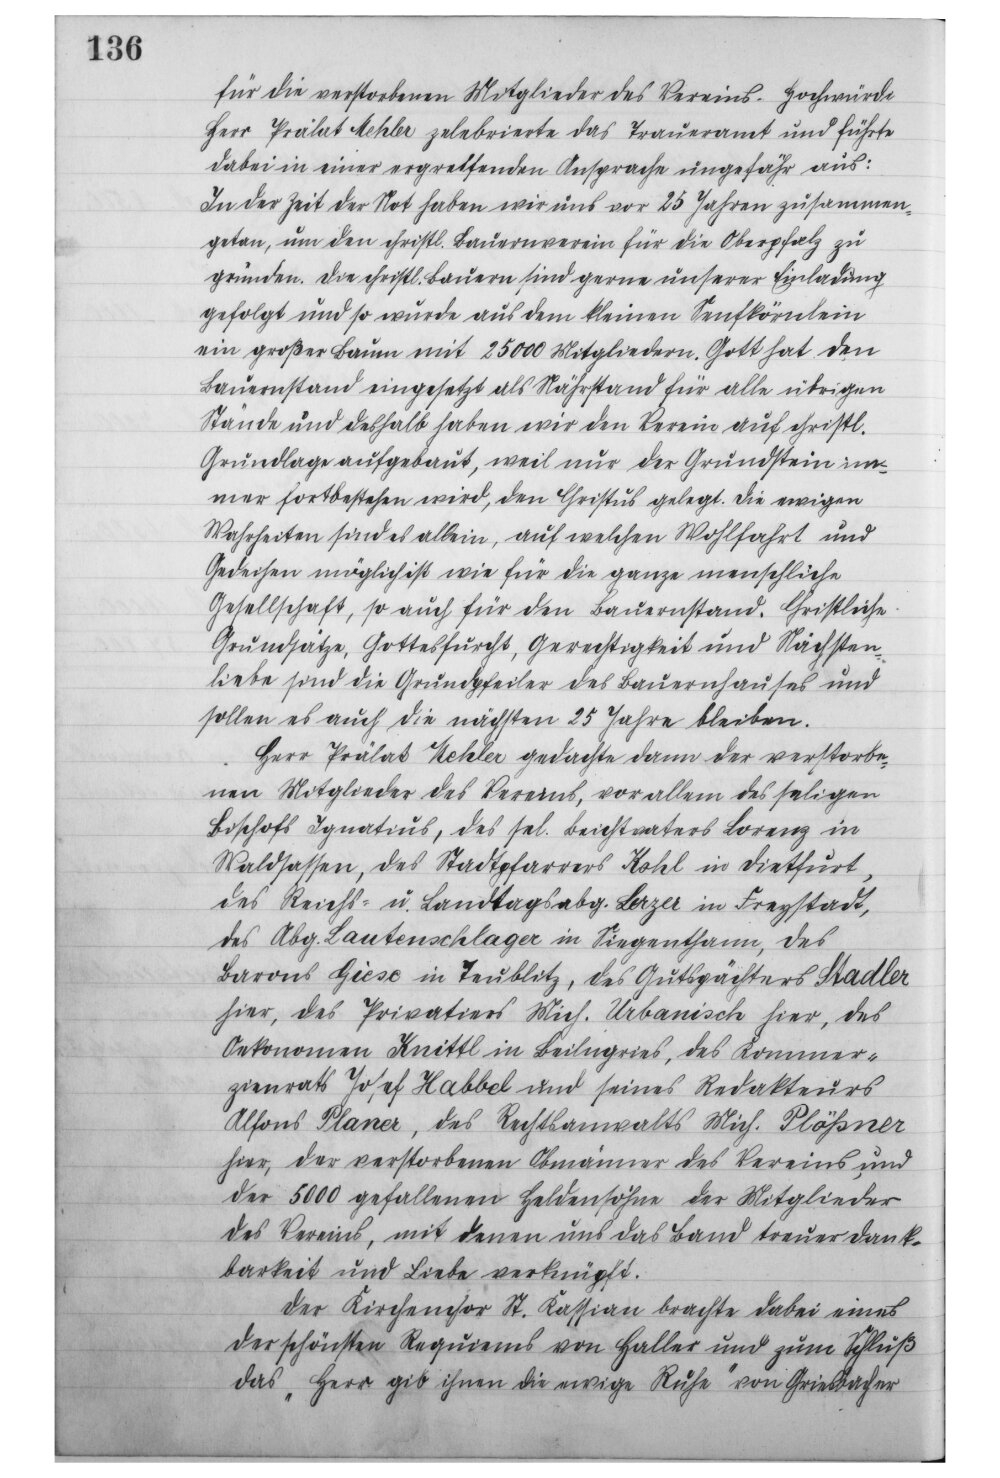 136
für die verstorbenen Mitglieder des Vereins. Hochwürde
Herr Prälat Mehler zelebrierte das Traueramt und führte
dabei in einer ergreifenden Ansprache ungefähr aus:
In der Zeit der Not haben wir uns vor 25 Jahren zusammen-
getan, um den christl. Bauernverein für die Oberpfalz zu
gründen. Die christl. Bauern sind gerne unserer Einladung
gefolgt und so wurde aus dem kleinen Senfkörnlein
ein großer Baum mit 25000 Mitgliedern. Gott hat den
Bauernstand eingesetzt als Nährstand für alle übrigen
Stände und deshalb haben wir den Verein auf christl.
Grundlage aufgebaut, weil nur der Grundstein im-
mer fortbestehen wird, den Christus gelegt. Die ewigen
Wahrheiten sind es allein, auf welchen Wohlfahrt und
Gedeihen möglich ist wie für die ganze menschliche
Gesellschaft, so auch für den Bauernstand. Christliche
Grundsätze, Gottesfurcht, Gerechtigkeit und Nächsten-
liebe sind die Grundpfeiler des Bauernhauses und
sollen es auch die nächsten 25 Jahre bleiben.
Herr Prälat Mehler gedachte dann der verstorbe-
nen Mitglieder des Vereins, vor allem des seligen
Bischofs Ignatius, des sel. Beichtvaters Lorenz in
Waldsassen, des Stadtpfarrers Kohl in Dietfurt,
des Reichs- u. Landtagsabg. Lerzer in Freystadt,
des Abg. Lautenschlager in Siegenthann, des
Barons Giese in Teublitz, des Gutspächters Stadler
hier, des Privatiers Mich. Urbanisch hier, des
Oekonomen Knittl in Beilngries, des Kommer-
zienrats Josef Habbel und seines Redakteurs
Alfons Planer, des Rechtsanwalts Mich. Plößner
hier, der verstorbenen Obmänner des Vereins und
der 5000 gefallenen Heldensöhne der Mitglieder
des Vereins, mit denen uns das Band treuer Dank-
barkeit und Liebe verknüpft.
Der Kirchenchor St. Kassian brachte dabei eines
der schönsten Requiems von Haller und zum Schluß
das „Herr gib ihnen die ewige Ruhe" von Griesbacher